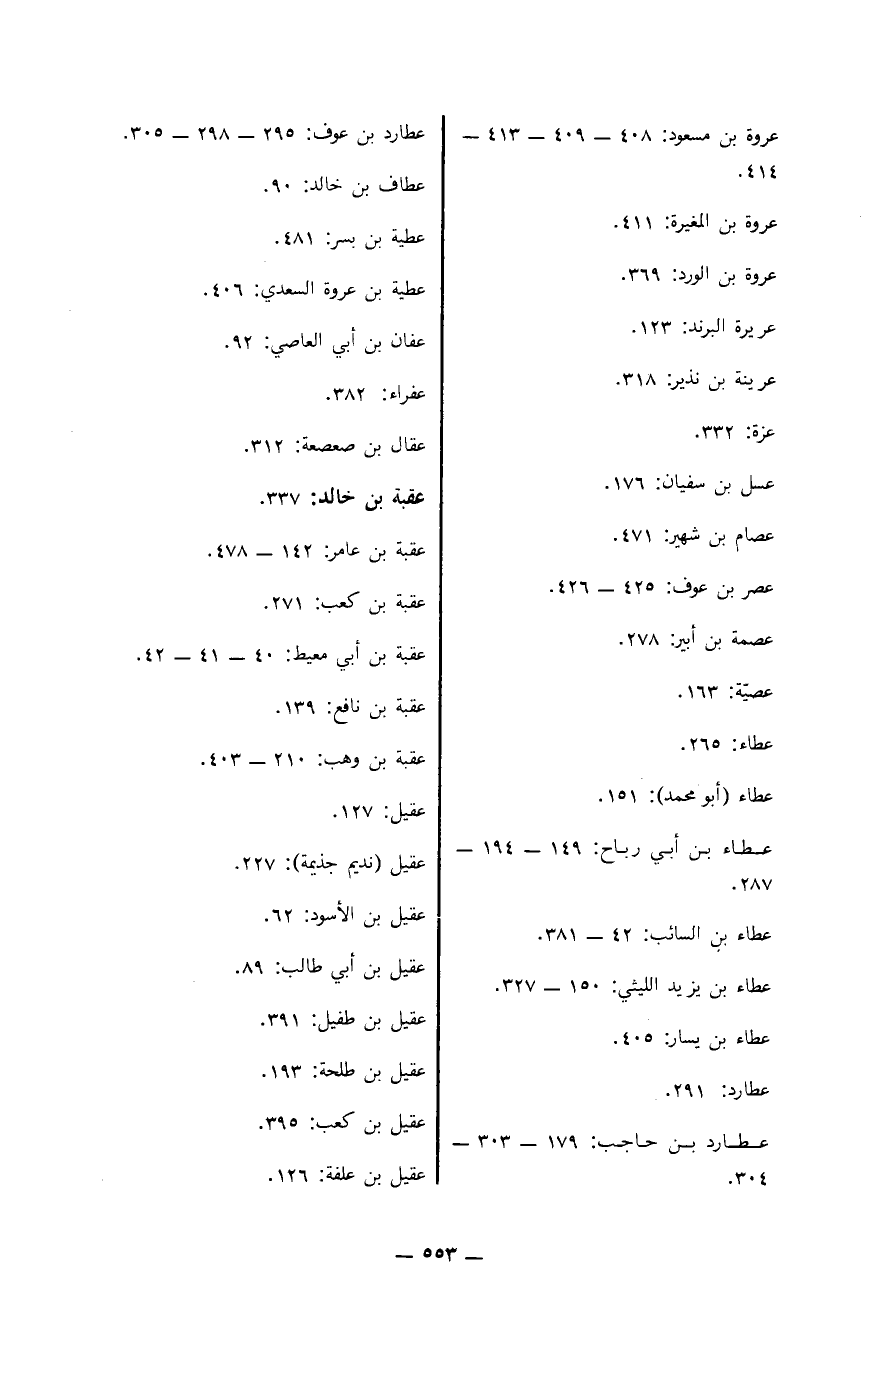 عروة بن مسعود: ٤٠٨ — ٤٠٩ — ٤١٣ —
٤١٤.
عروة بن المغيرة: ٤١١.
عروة بن الورد: ٣٦٩.
عريرة البرند: ١٢٣.
عرينة بن نذير: ٣١٨.
عزة: ٣٣٢.
عسل بن سفيان: ١٧٦.
عصام بن شهير: ٤٧١.
عصر بن عوف: ٤٢٥ — ٤٢٦.
عصمة بن أبير: ٢٧٨.
عصيّة: ١٦٣.
عطاء: ٢٦٥.
عطاء (أبو محمد): ١٥١.
عطاء بن أبي رباح: ١٤٩ — ١٩٤ —
٢٨٧.
عطاء بن السائب: ٤٢ — ٣٨١.
عطاء بن يزيد الليثي: ١٥٠ — ٣٢٧.
عطاء بن يسار: ٤٠٥.
عطارد: ٢٩١.
عطارد بن حاجب: ١٧٩ — ٣٠٣ —
٣٠٤.
عطارد بن عوف: ٢٩٥ — ٢٩٨ — ٣٠٥.
عطاف بن خالد: ٩٠.
عطية بن بسر: ٤٨١.
عطية بن عروة السعدي: ٤٠٦.
عفان بن أبي العاصي: ٩٢.
عفراء: ٣٨٢.
عقال بن صعصعة: ٣١٢.
عقبة بن خالد: ٣٣٧.
عقبة بن عامر: ١٤٢ — ٤٧٨.
عقبة بن كعب: ٢٧١.
عقبة بن أبي معيط: ٤٠ — ٤١ — ٤٢.
عقبة بن نافع: ١٣٩.
عقبة بن وهب: ٢١٠ — ٤٠٣.
عقيل: ١٢٧.
عقيل (نديم جذيمة): ٢٢٧.
عقيل بن الأسود: ٦٢.
عقيل بن أبي طالب: ٨٩.
عقيل بن طفيل: ٣٩١.
عقيل بن طلحة: ١٩٣.
عقيل بن كعب: ٣٩٥.
عقيل بن علفة: ١٢٦.
— ٥٥٣ —